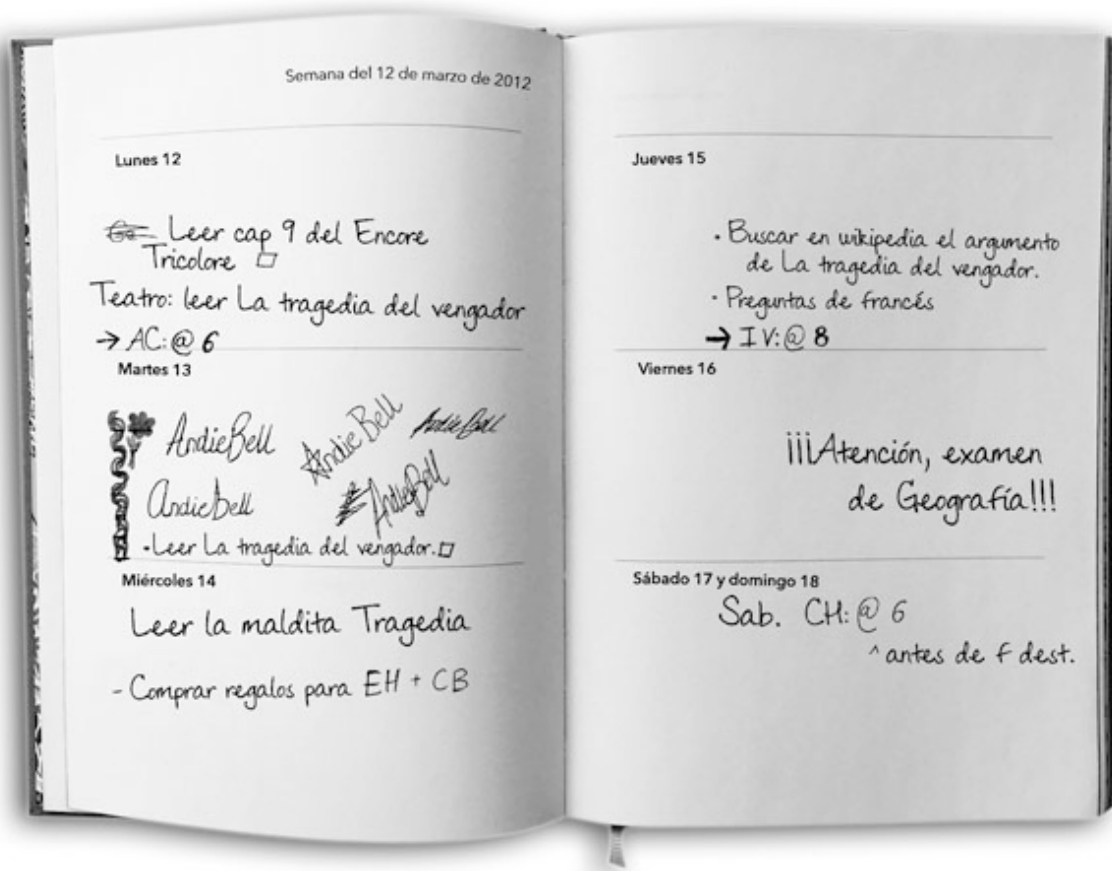 Semana del 12 de marzo de 2012
Lunes 12
Leer cap 9 del Encore
Tricolore
Teatro: leer La tragedia del vengador
→ AC: @ 6
Martes 13
Andie Bell
Andie Bell
Andie Bell
Andie Bell
Andie Bell
• Leer La tragedia del vengador.
Miércoles 14
Leer la maldita Tragedia
- Comprar regalos para EH + CB
Jueves 15
• Buscar en wikipedia el argumento
de La tragedia del vengador.
• Preguntas de francés
→ IV: @ 8
Viernes 16
¡¡¡Atención, examen
de Geografía!!!
Sábado 17 y domingo 18
Sab. CH: @ 6
^ antes de f dest.